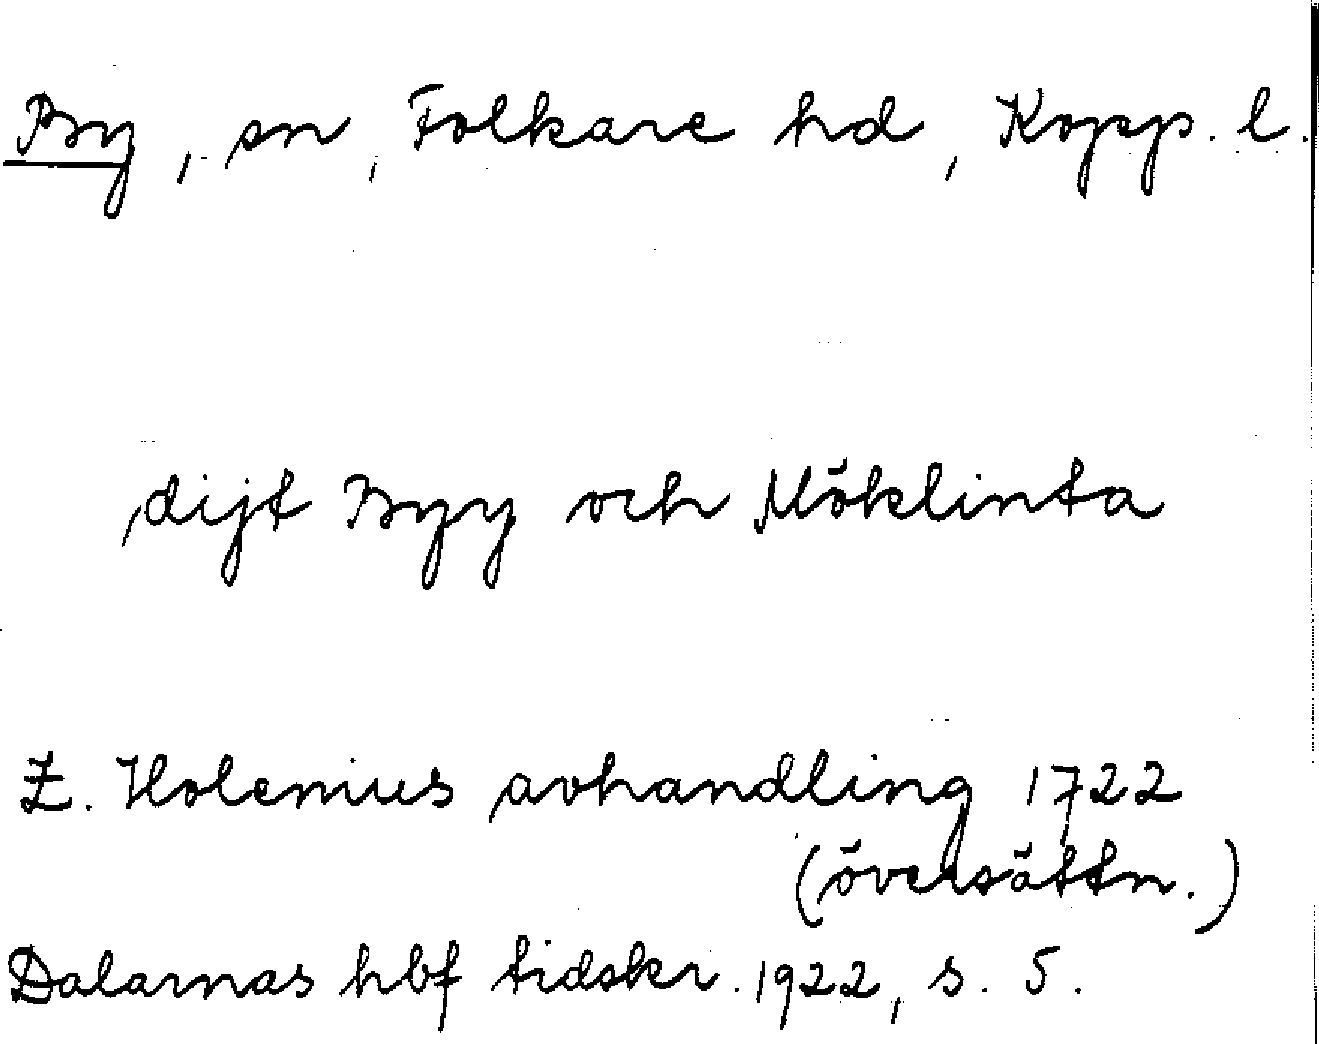 By, sn, Folkare hd, Kopp. l.
dijt Byy och Möklinta
Z. Holenius avhandling 1722
(översättn.)
Dalarnas hbf tidskr. 1922, s. 5.